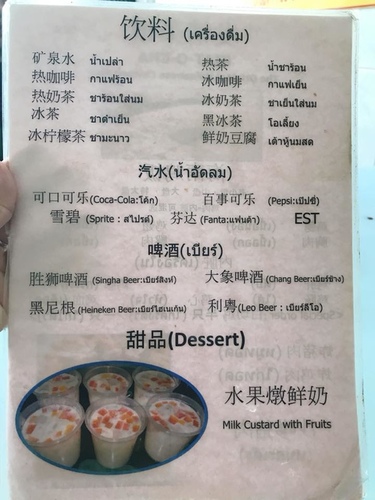 饮料 (เครื่องดื่ม)
矿泉水 น้ำเปล่า 热茶 น้ำชาร้อน
热咖啡 กาแฟร้อน 冰咖啡 กาแฟเย็น
热奶茶 ชาร้อนใส่นม 冰奶茶 ชาเย็นใส่นม
冰茶 ชาดำเย็น 黑冰茶 โอเลี้ยง
冰柠檬茶 ชามะนาว 鲜奶豆腐 เต้าหู้นมสด
汽水(น้ำอัดลม)
可口可乐(Coca-Cola:โค้ก) 百事可乐 (Pepsi:เป๊ปซี่)
雪碧 (Sprite : สไปรต์) 芬达 (Fanta:แฟนต้า) EST
啤酒(เบียร์)
胜狮啤酒 (Singha Beer:เบียร์สิงห์) 大象啤酒 (Chang Beer:เบียร์ช้าง)
黑尼根 (Heineken Beer:เบียร์ไฮเนเก้น) 利粤(Leo Beer : เบียร์ลีโอ)
甜品(Dessert)
水果燉鲜奶
Milk Custard with Fruits